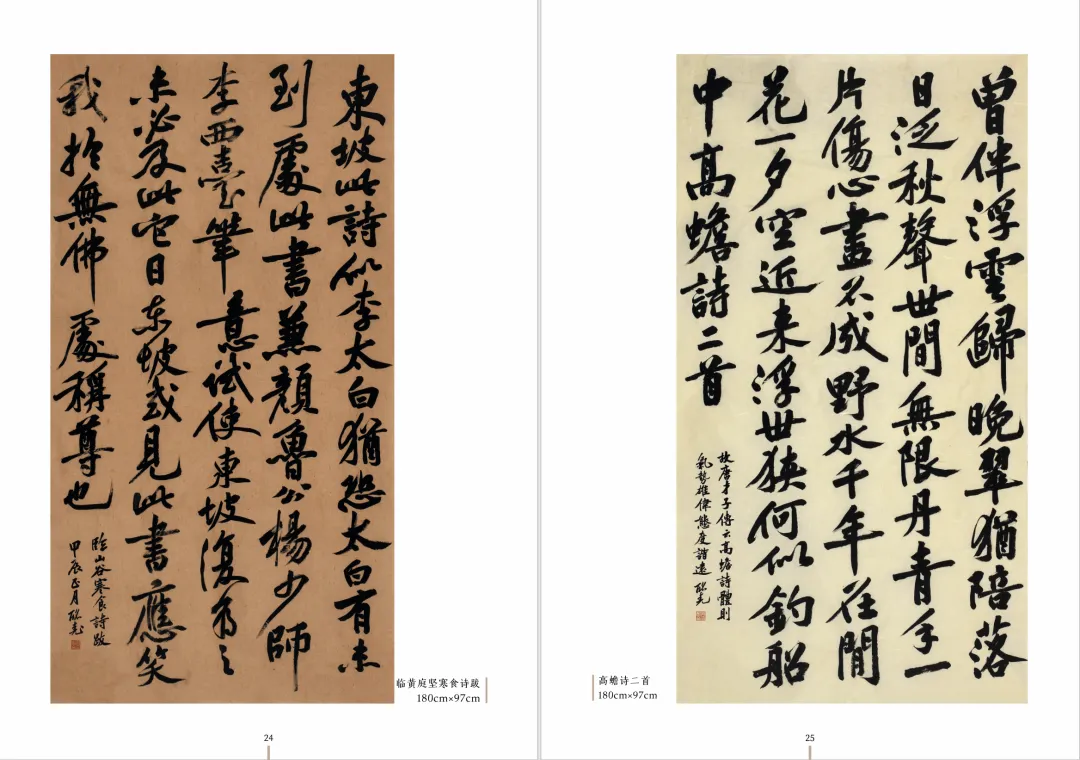 東坡此詩似李太白猶恐太白有未
到處此書兼顏魯公楊少師
李西臺筆意試使東坡復為之
未必及此它日东坡或見此書應笑
我於無佛處稱尊也
臨山谷寒食詩跋
甲辰正月
临黄庭坚寒食诗跋
180cm×97cm
24
曾伴浮雲歸晚翠猶陪落
日泛秋聲世間無限丹青手一
片傷心畫不成野水千年在閒
花一夕空近来浮世狹何似釣船
中高蟾詩二首
故唐才子傳云高蟾詩體則
氣勢雄偉態度諧遠
高蟾诗二首
180cm×97cm
25